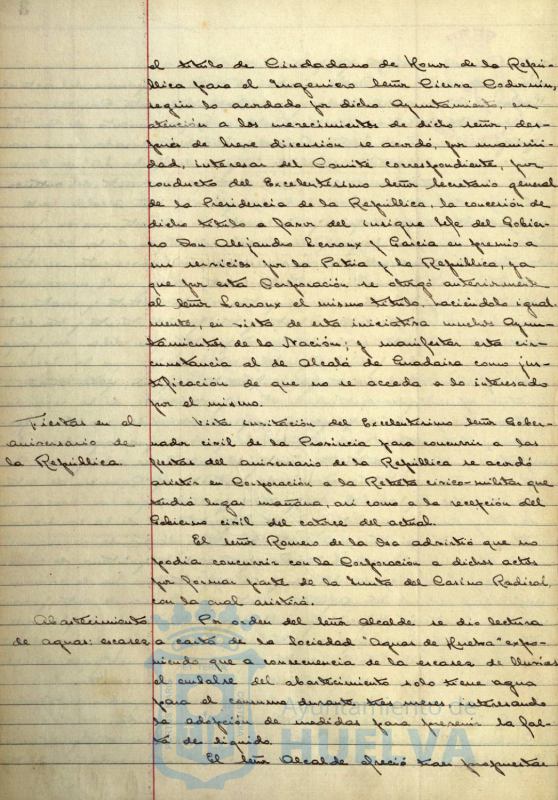 el título de Ciudadano de Honor de la Repú-
blica para el Ingeniero Señor Cierva Codorniu,
según lo acordado por dicho Ayuntamiento, en
atención a los merecimientos de dicho señor, des-
pués de breve discusión se acordó, por unanimi-
dad, interesar del Comité correspondiente, por
conducto del Excelentísimo Señor Secretario general
de la Presidencia de la República, la concesión de
dicho título a favor del insigne Jefe del Gobier-
no Don Alejandro Lerroux y Garcia en premio a
sus servicios por la Patria y la República, ya
que por esta Corporación se otorgó anteriormente
al Señor Lerroux el mismo título, haciéndolo igual-
mente, en vista de esta iniciativa muchos Ayun-
tamientos de la Nación; y manifestar esta cir-
cunstancia al de Alcalá de Guadaira como jus-
tificación de que no se acceda a lo interesado
por el mismo.
Fiestas en el
aniversario de
la República.
Vista invitación del Excelentísimo Señor Gober-
nador civil de la Provincia para concurrir a las
fiestas del aniversario de la República se acordó
asistir en Corporación a la Retreta cívico-militar que
tendrá lugar mañana, así como a la recepción del
Gobierno civil del catorce del actual.
El Señor Romero de la Osa advirtió que no
podía concurrir con la Corporación a dichos actos
por formar parte de la Junta del Casino Radical,
con la cual asistirá.
Abastecimiento
de aguas: escasez
Por orden del Señor Alcalde se dio lectura
a carta de la Sociedad "Aguas de Huelva" expo-
niendo que a consecuencia de la escasez de lluvias
el embalse del abastecimiento solo tiene agua
para el consumo durante tres meses interesando
la adopción de medidas para prevenir la fal-
ta de líquido.
El Señor Alcalde ofreció traer propuestas
Ayuntamiento de
HUELVA